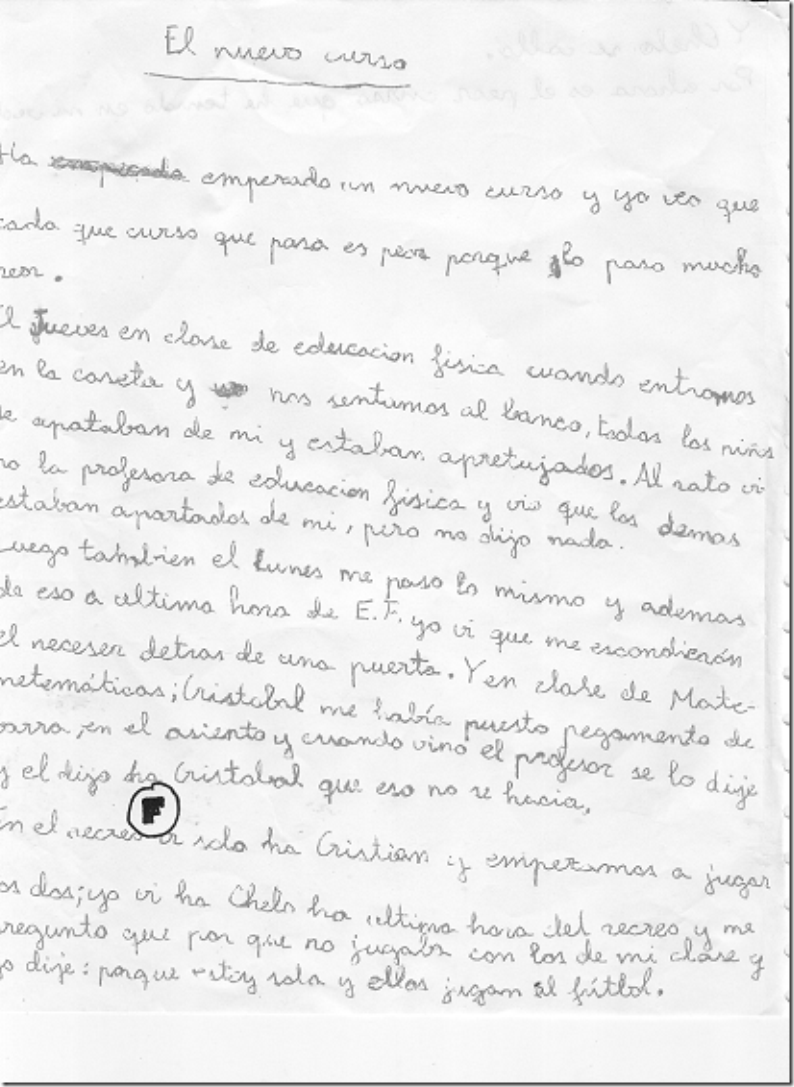 El nuevo curso
Ha empezado un nuevo curso y yo veo que
cada que curso que pasa es peor porque lo paso mucho
peor.
El Jueves en clase de educacion fisica cuando entramos
en la caseta y nos sentamos al banco, todos los niños
se apataban de mi y estaban apretujados. Al rato vi
no la profesora de educacion fisica y vio que los demas
estaban apartados de mi, pero no dijo nada.
Luego tambien el Lunes me paso lo mismo y ademas
de eso a ultima hora de E.F. yo vi que me escondierón
el neceser detras de una puerta. Y en clase de Mate-
metemáticas; Cristobal me había puesto pegamento de
barra, en el asiento y cuando vino el profesor se lo dije
y el dijo ha Cristobal que eso no se hacia,
F
En el recreo vi solo ha Cristian y empezamos a jugar
los dos; yo vi ha Chelo ha ultima hora del recreo y me
pregunto que por que no jugaba con los de mi clase y
yo dije: porque estoy solo y ellos jugan al fútbol.